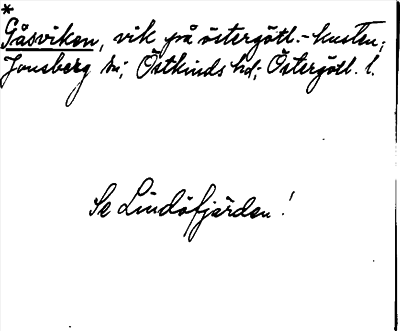 *
Gåsviken, vik på östergötl.-kusten;
Jonsberg sn; Östkinds hd; Östergötl. l.
Se Lindöfjärden!